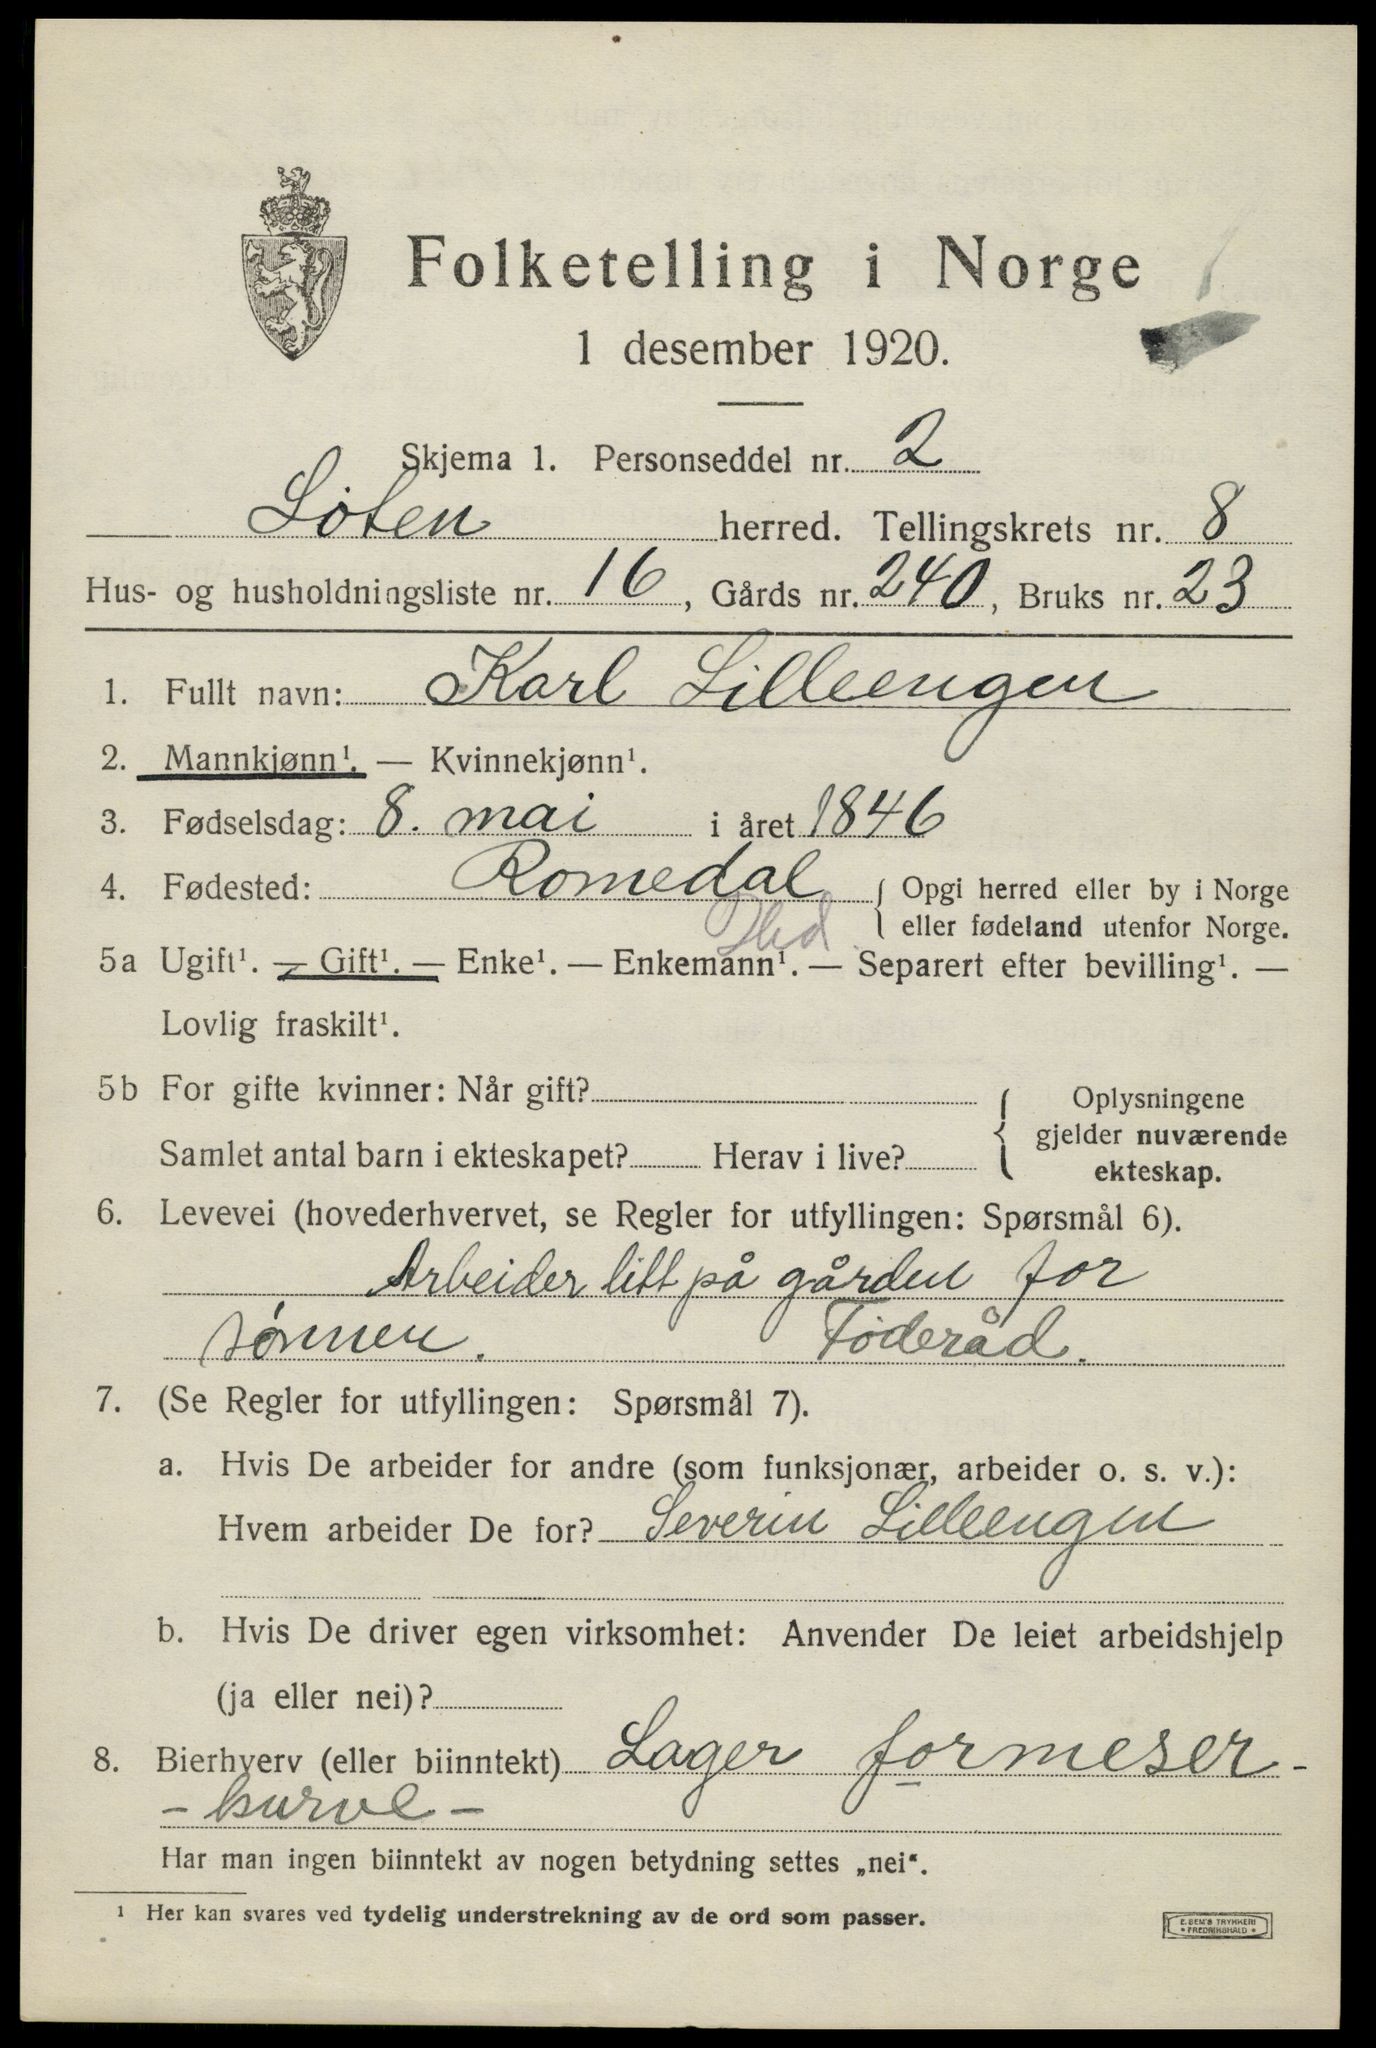 Folketelling i Norge
1 desember 1920.
Skjema 1. Personseddel nr. 2
Løten herred. Tellingskrets nr. 8
Hus- og husholdningsliste nr. 16, Gårds nr. 240, Bruks nr. 23
1. Fullt navn: Karl Lilleengen
2. Mannkjønn¹. — Kvinnekjønn¹.
3. Fødselsdag: 8. mai i året 1846
4. Fødested: Romedal { Opgi herred eller by i Norge
eller fødeland utenfor Norge.
Hed.
5a Ugift¹. — Gift¹. — Enke¹. — Enkemann¹. — Separert efter bevilling¹. —
Lovlig fraskilt¹.
5b For gifte kvinner: Når gift?
Samlet antal barn i ekteskapet? Herav i live?
{ Oplysningene
gjelder nuværende
ekteskap.
6. Levevei (hovederhvervet, se Regler for utfyllingen: Spørsmål 6).
Arbeider litt på gården for
sønnen. Føderåd.
7. (Se Regler for utfyllingen: Spørsmål 7).
a. Hvis De arbeider for andre (som funksjonær, arbeider o. s. v.):
Hvem arbeider De for? Severin Lilleengen
b. Hvis De driver egen virksomhet: Anvender De leiet arbeidshjelp
(ja eller nei)?
8. Bierhverv (eller biinntekt) Lager formeser-
- kurve -
Har man ingen biinntekt av nogen betydning settes „nei“.
¹ Her kan svares ved tydelig understrekning av de ord som passer.
E. SEM'S TRYKKERI
FREDRIKSHALD